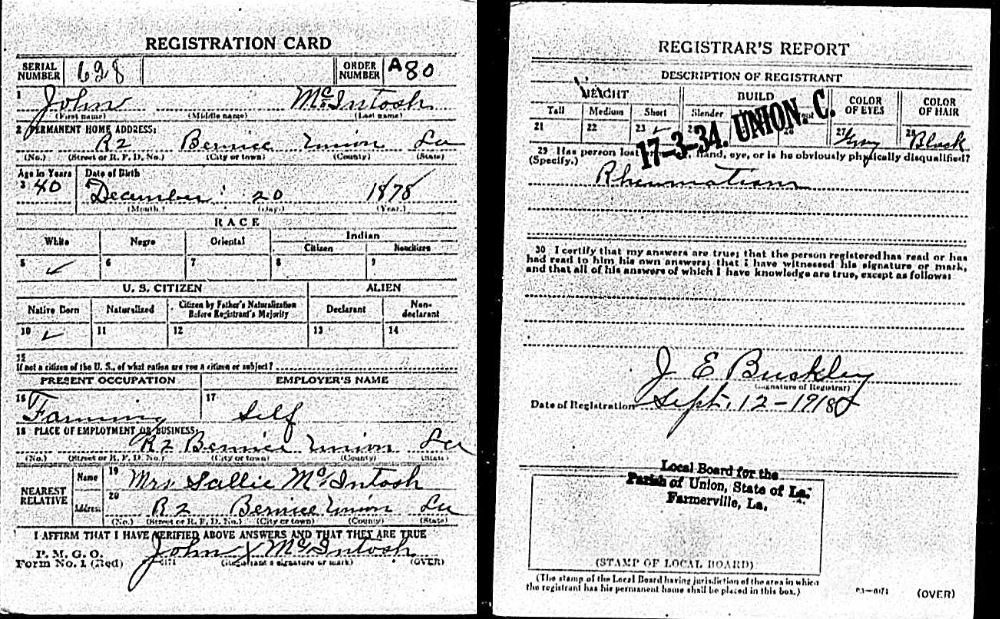 REGISTRATION CARD
SERIAL NUMBER 628 ORDER NUMBER A80
1 John McIntosh
(First name) (Middle name) (Last name)
2 PERMANENT HOME ADDRESS:
R2 Bernice Union La
(No.) (Street or R. F. D. No.) (City or town) (County) (State)
Age in Years Date of Birth
3 40 December 20 1878
(Month.) (Day.) (Year.)
RACE
White Negro Oriental Indian
Citizen Noncitizen
5 ✓ 6 7 8 9
U. S. CITIZEN ALIEN
Native Born Naturalized Citizen by Father's Naturalization Before Registrant's Majority Declarant Non-declarant
10 ✓ 11 12 13 14
15
If not a citizen of the U. S., of what nation are you a citizen or subject?
PRESENT OCCUPATION EMPLOYER'S NAME
16 Farming 17 Self
18 PLACE OF EMPLOYMENT OR BUSINESS:
R2 Bernice Union La
(No.) (Street or R. F. D. No.) (City or town) (County) (State)
NEAREST RELATIVE
Name 19 Mrs Sallie McIntosh
Address 20 R2 Bernice Union La
(No.) (Street or R. F. D. No.) (City or town) (County) (State)
I AFFIRM THAT I HAVE VERIFIED ABOVE ANSWERS AND THAT THEY ARE TRUE
P. M. G. O.
Form No. 1 (Red) John X McIntosh
(Registrant's signature or mark) (OVER)
REGISTRAR'S REPORT
DESCRIPTION OF REGISTRANT
HEIGHT BUILD COLOR OF EYES COLOR OF HAIR
Tall Medium Short Slender
21 22 23 ✓ 27 Gray 28 Black
17-3-34. UNION. C.
29 Has person lost hand, eye, or is he obviously physically disqualified?
(Specify.)
Rheumatism
30 I certify that my answers are true; that the person registered has read or has
had read to him his own answers; that I have witnessed his signature or mark,
and that all of his answers of which I have knowledge are true, except as follows:
J E Buckley
(Signature of Registrar)
Date of Registration Sept. 12-1918
Local Board for the
Parish of Union, State of La.
Farmerville, La.
(STAMP OF LOCAL BOARD)
(The stamp of the Local Board having jurisdiction of the area in which
the registrant has his permanent home shall be placed in this box.)
(OVER)